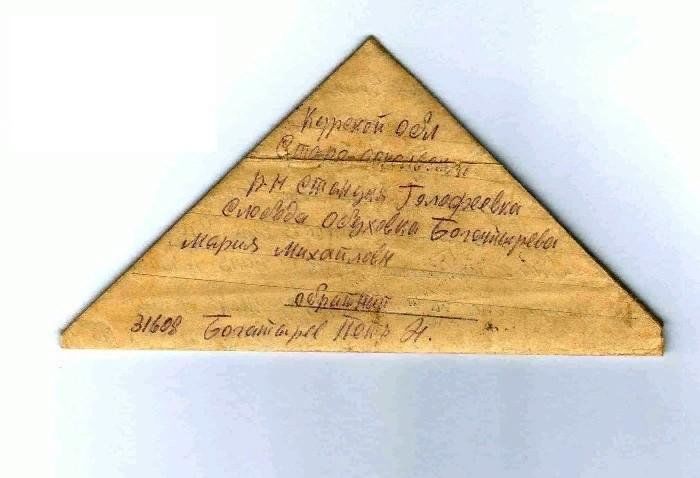 Курской обл
Старо-оскольский
р-н станция Голофеевка
Слобода Обуховка Богатырева
Мария Михайловн
обратный
31608 Богатырев Петр И.